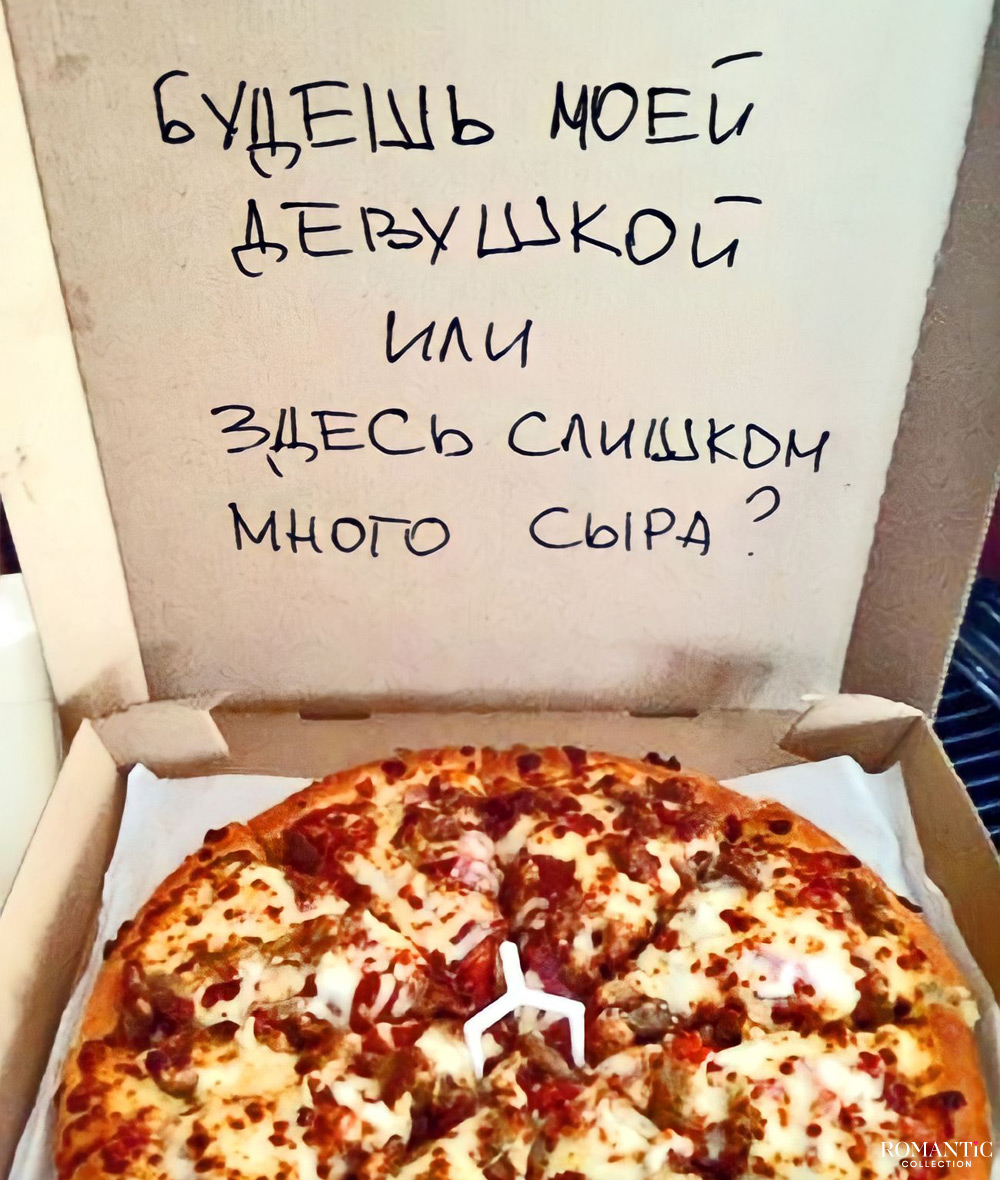 БУДЕШЬ МОЕЙ
ДЕВУШКОЙ
ИЛИ
ЗДЕСЬ СЛИШКОМ
МНОГО СЫРА?
ROMANTiC
COLLECTION